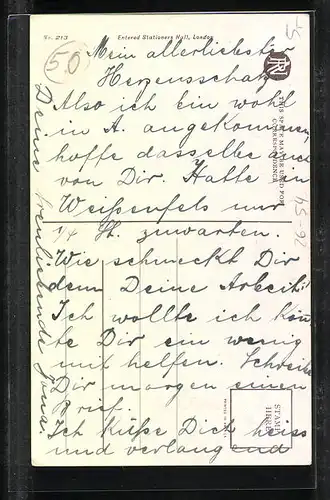 No. 213
Entered Stationers Hall, London
50
Mein allerliebster
Herzensschatz
Also ich bin wohl
in A. angekommen,
hoffe dasselbe auch
von Dir. Hatte in
Weißenfels nur
1/4 St. zuwarten.
Wie schmeckt Dir
denn Deine Arbeit!
Ich wollte ich könn
te Dir ein wenig
mit helfen. Schreibe
Dir morgen einen
Brief.
Ich küße Dich heiss
und verlangend
Deine treuliebende
THIS SPACE MAY BE USED FOR
CORRESPONDENCE
45-92
STAMP
HERE